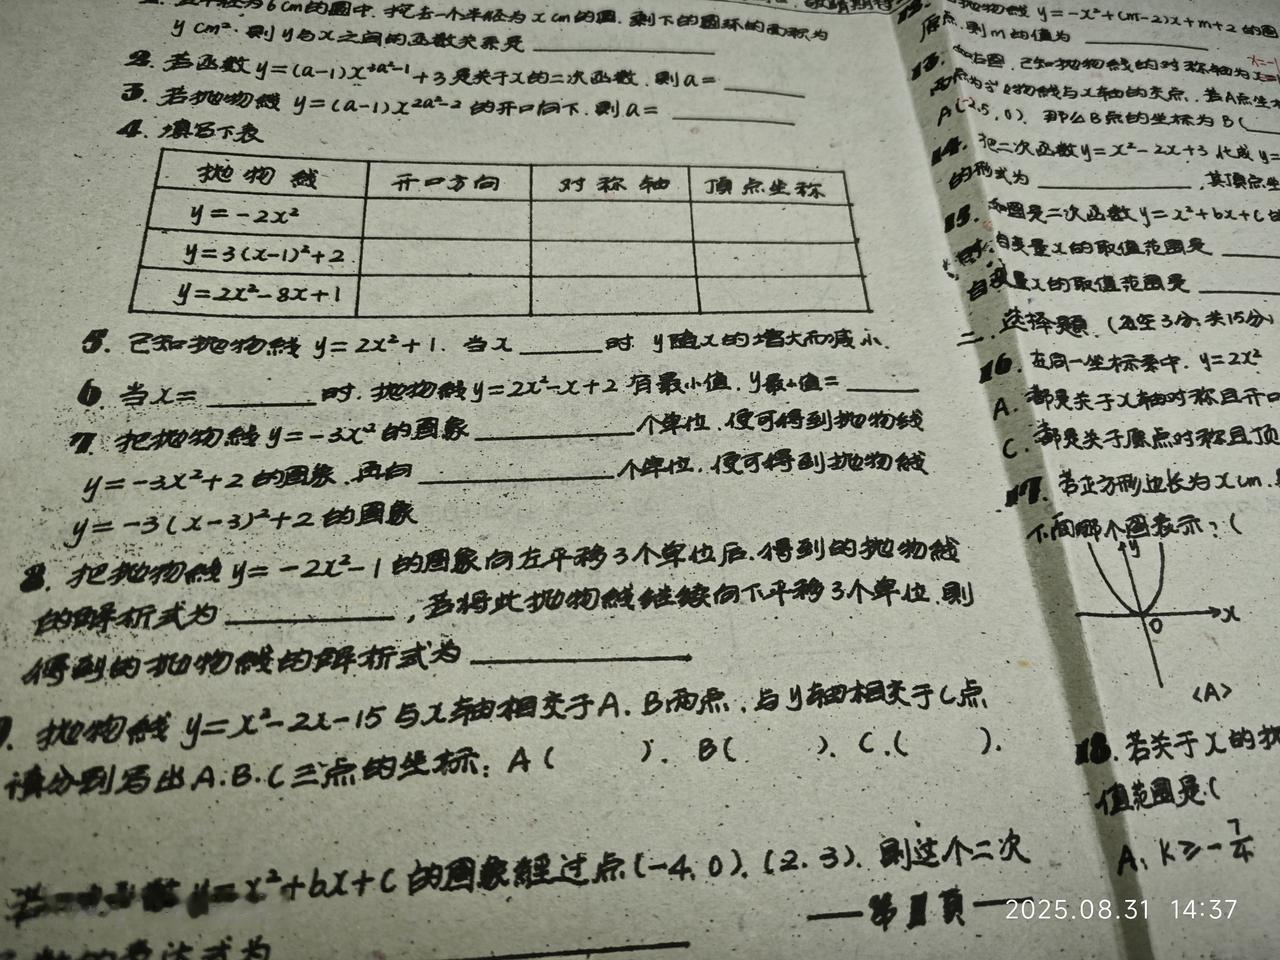 在半径为6cm的圆中.挖去一个半径为xcm的圆.剩下的圆环的面积为
y cm².则y与x之间的函数关系是
2. 若函数y=(a-1)x +3是关于x的二次函数.则a=
3. 若抛物线 y=(a-1)x^{2a²-2}的开口向下.则a=
4. 填写下表
抛物线 开口方向 对称轴 顶点坐称
y=-2x²
y=3(x-1)²+2
y=2x²-8x+1
5. 已知抛物线y=2x²+1.当x____时.y随x的增大而减小.
6. 当x=____时.抛物线y=2x²-x+2有最小值.y最小值=____
7. 把抛物线y=-3x²的图象____个单位.便可得到抛物线
y=-3x²+2的图象.再向____个单位.便可得到抛物线
y=-3(x-3)²+2的图象
8. 把抛物线y=-2x²-1的图象向左平移3个单位后.得到的抛物线
的解析式为____,若将此抛物线继续向下平移3个单位.则
得到的抛物线的解析式为____
9. 抛物线y=x²-2x-15与x轴相交于A.B两点.与y轴相交于C点
请分别写出A.B.C三点的坐标: A( ). B( ). C.( ).
y=x²+bx+c的图象经过点(-4,0).(2.3).则这个二次
函数的表达式为____
第1页
抛物线y=-x²+(m-2)x+m+2的图
原点.则m的值为
13. 如右图.已知抛物线的对称轴为x=
物线与x轴的交点.若A点坐
A(-2.5,0).那么B点的坐标为B(
14. 把二次函数y=x²-2x+3化成y=
的形式为____,其顶点坐
15. 如图是二次函数y=x²+bx+c的
自变量x的取值范围是
自变量x的取值范围是
二.选择题.(每空3分.共15分)
16. 在同一坐标系中.y=2x²
A. 都是关于x轴对称且开口
C. 都是关于原点对称且顶
17. 若正方形边长为xcm.
下面哪个图表示:(
y
x
O
<A>
18. 若关于x的抛
值范围是(
A. k≥-7/4
2025.08.31 14:37